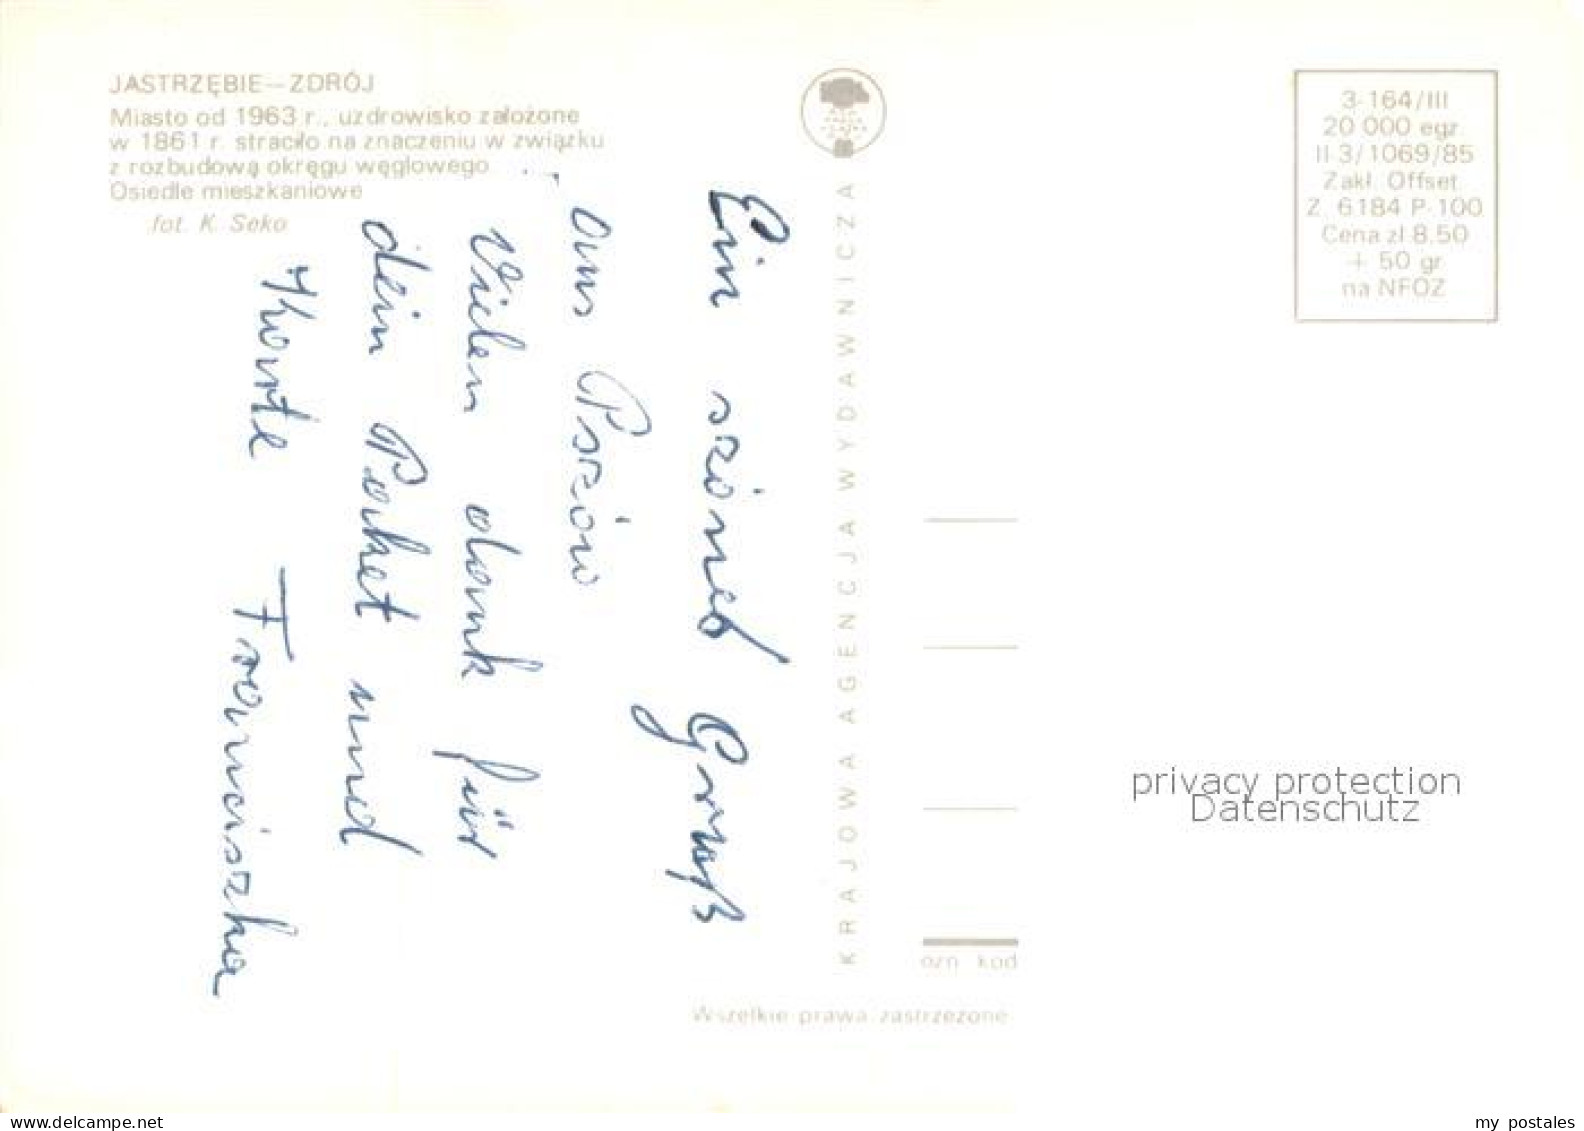 JASTRZĘBIE-ZDRÓJ
Miasto od 1963 r., uzdrowisko założone
w 1861 r. straciło na znaczeniu w związku
z rozbudową okręgu węglowego
Osiedle mieszkaniowe
fot. K. Seko
Ein szönes Gruß
aus Pszów
Vielen dank für
dein Paket und
Karte Franciszka
KRAJOWA AGENCJA WYDAWNICZA
3-164/III
20 000 egz.
II-3/1069/85
Zakł. Offset.
Z. 6184 P-100
Cena zł 8,50
+ 50 gr
na NFOZ
privacy protection
Datenschutz
ozn. kod
Wszelkie prawa zastrzeżone
www.delcampe.net
my_postales